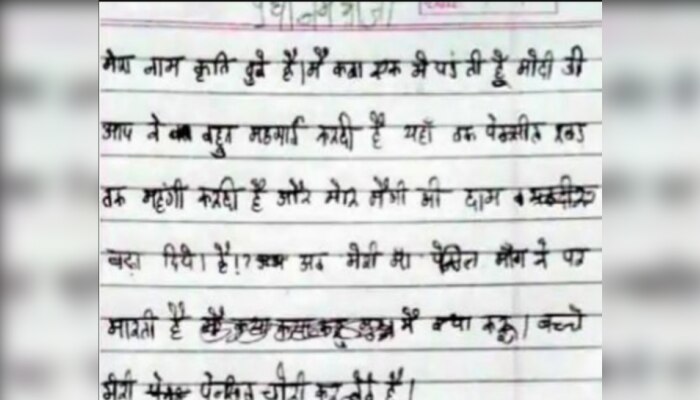 प्रधानमंत्री जी
मेरा नाम कृति दुबे है। मैं कक्षा एक मे पड़ती हूँ मोदी जी
आप ने बहुत महगाई करदी है यहाँ तक पेन्सील रबड़
तक महंगी करदी है और मेरि मैगी की दाम
बढ़ा दिये। है।? अब मेरी माँ पेंसिल माँगने पर
मारती है मैं क्या करू। बच्चे
मेरी पेन्सिल चोरी कर लेते है।